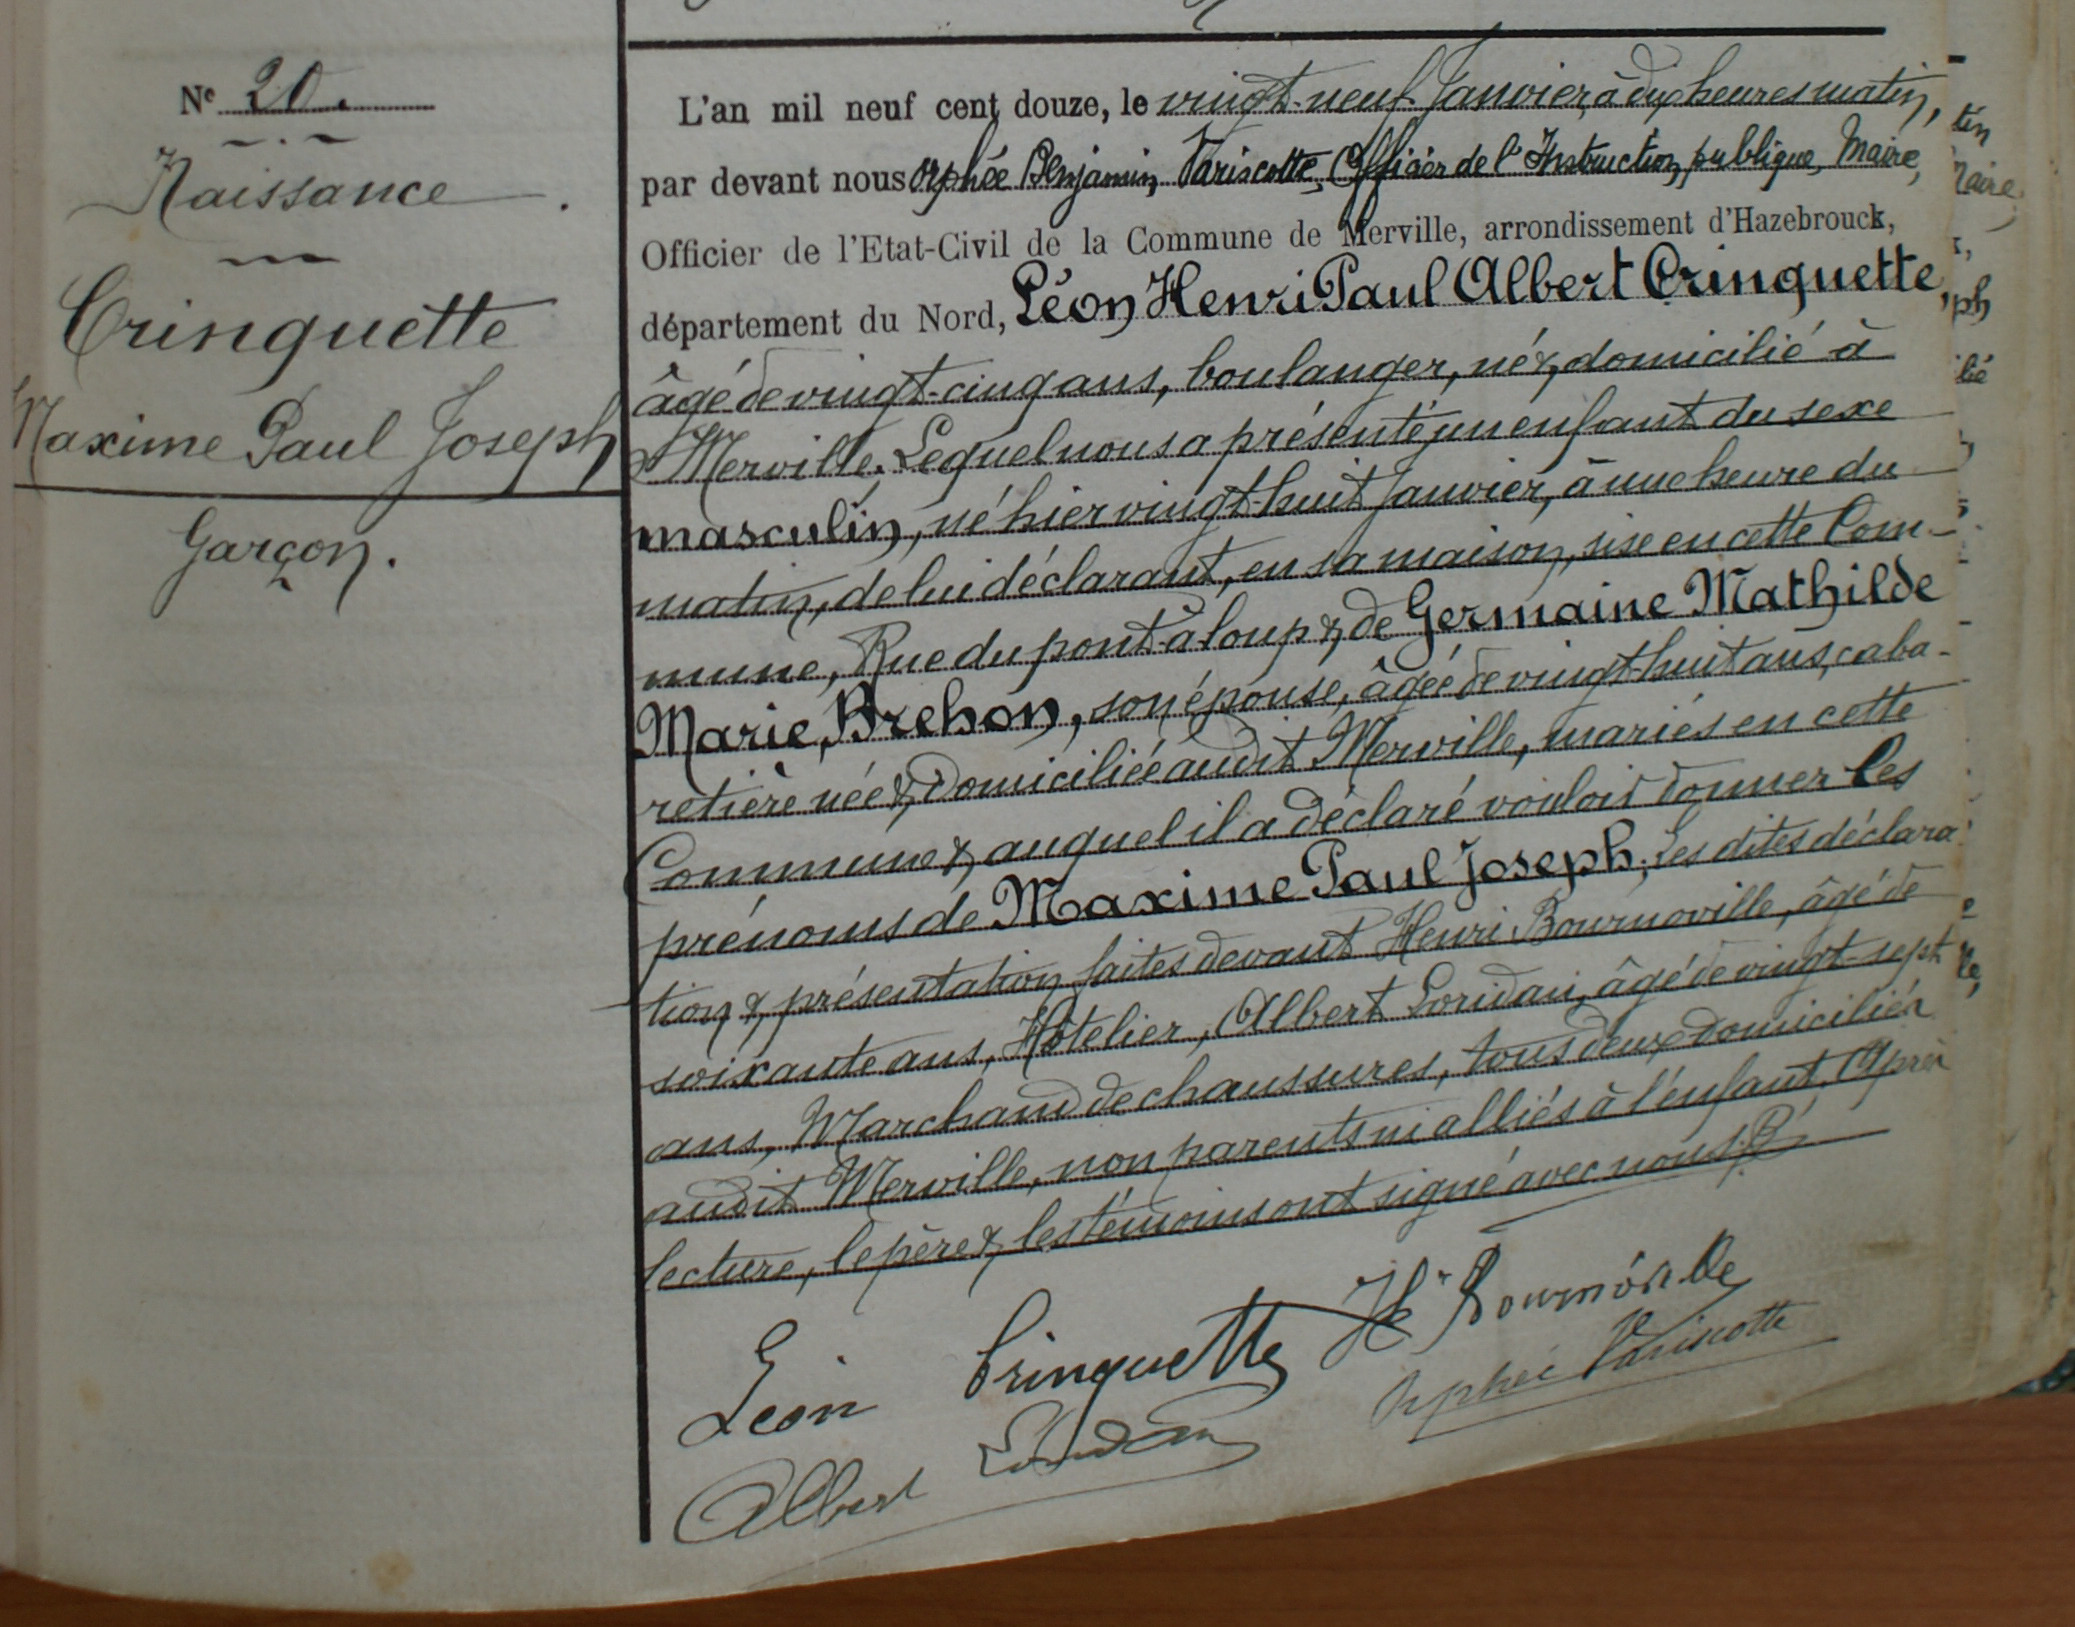 N° 20.
Naissance.
Cringuette
Maxime Paul Joseph
Garçon.
L'an mil neuf cent douze, le vingt-neuf Janvier, à dix heures matin,
par devant nous Orphée Benjamin Variscotte, Officier de l'Instruction publique, Maire,
Officier de l'Etat-Civil de la Commune de Merville, arrondissement d'Hazebrouck,
département du Nord, Léon Henri Paul Albert Cringuette,
âgé de vingt-cinq ans, boulanger, né & domicilié à
Merville. Lequel nous a présenté un enfant du sexe
masculin, né hier vingt-huit Janvier, à une heure du
matin, de lui déclarant, en sa maison, sise en cette Com-
mune, Rue du pont à loup & de Germaine Mathilde
Marie Brehon, son épouse, âgée de vingt-huit ans, caba-
retière née & domiciliée audit Merville, mariés en cette
Commune & auquel il a déclaré vouloir donner les
prénoms de Maxime Paul Joseph; Les dites déclara
tion & présentation faites devant Henri Bournoville, âgé de
soixante ans, Hôtelier, Albert Loridan, âgé de vingt-sept
ans, Marchand de chaussures, tous deux domiciliés
audit Merville, non parents ni alliés à l'enfant. Après
lecture, le père & les témoins ont signé avec nous.
Léon Cringuette Hri Bournoville
Albert Loridan Orphée Variscotte
tin
Maire,
ph
lié